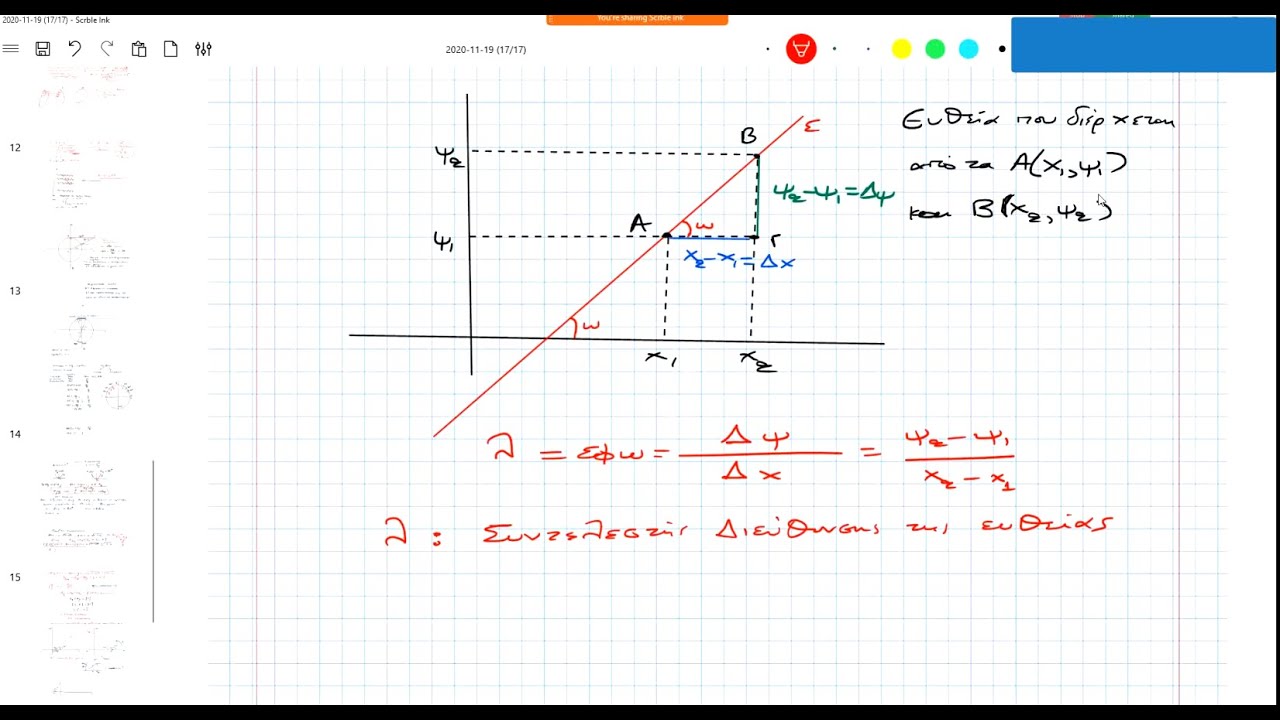 2020-11-19 (17/17) - Scrble Ink
You're sharing Scrble Ink
2020-11-19 (17/17)
12
13
14
15
Ευθεία που διέρχεται
από τα Α(x₁,ψ₁)
και Β(x₂,ψ₂)
Β
ε
ψ₂
ψ₂-ψ₁=Δψ
Α
ω
ψ₁
Γ
x₂-x₁=Δx
ω
x₁
x₂
λ = εφω = Δψ / Δx = ψ₂-ψ₁ / x₂-x₁
λ : Συντελεστής Διεύθυνσης της ευθείας